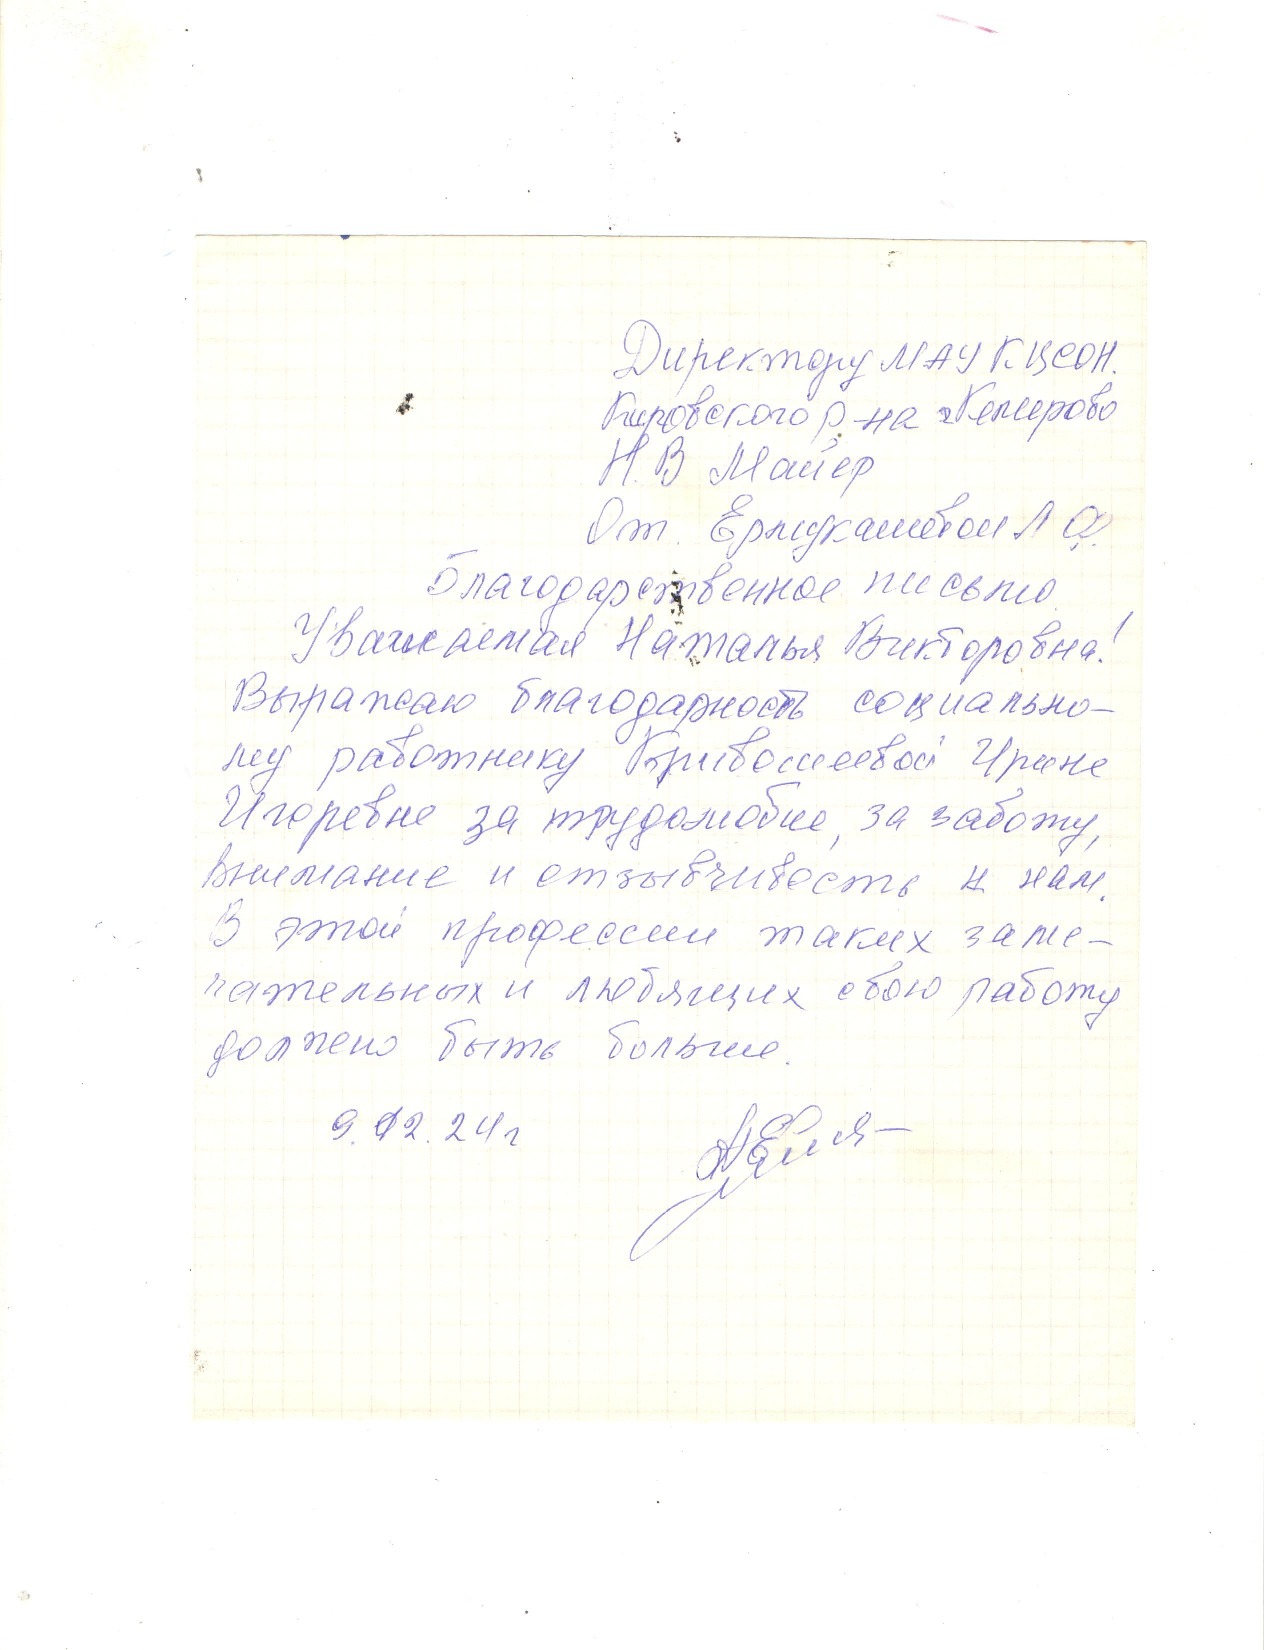 Директору МАУ КЦСОН.
Кировского р-на г Кемерово
Н. В Майер
От. Ермукашевой Л Ф.
Благодарственное письмо
Уважаемая Наталья Викторовна!
Выражаю благодарность социально-
му работнику Кривошеевой Ирине
Игоревне за трудолюбие, за заботу,
внимание и отзывчивость к нам.
В этой профессии таких заме-
чательных и любящих свою работу
должно быть больше.
9.02.24г